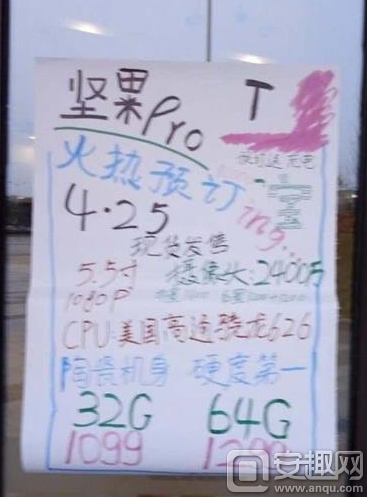 坚果Pro T
火热预订
4·25
现货发售
5.5寸 摄像头:2400万
1080P
CPU:美国高通骁龙626
陶瓷机身 硬度第一
32G 64G
1099 1299
安趣网
www.anqu.com